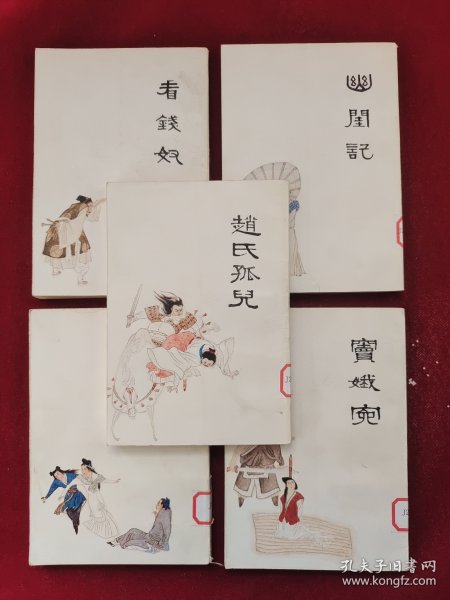 看錢奴
幽閨記
趙氏孤兒
竇娥冤
孔夫子旧书网
www.kongfz.com